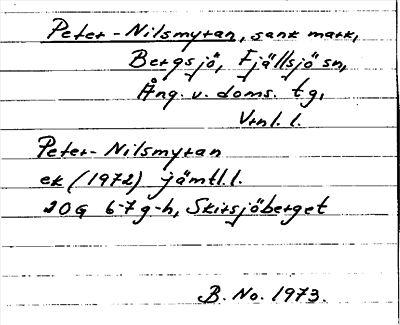 Peter-Nilsmyran, sank mark,
Bergsjö, Fjällsjö sn,
Ång. v. doms. tg,
Vrnl. l.
Peter-Nilsmyran
ek (1972) jämtl.l.
20G 6-7 g-h, Skirsjöberget
B. No. 1973.